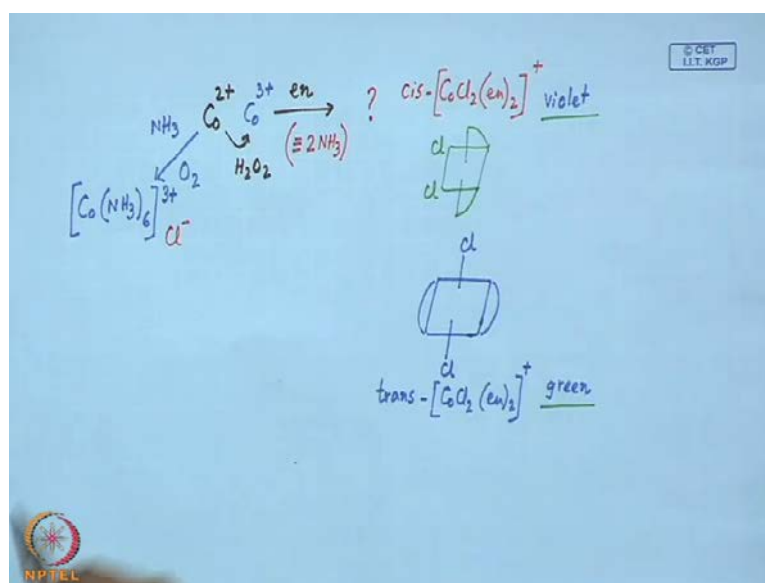 © CET
I.I.T. KGP
NH₃ Co²⁺ Co³⁺ en ? cis-[CoCl₂(en)₂]⁺ violet
O₂ H₂O₂ (≡ 2NH₃)
[Co(NH₃)₆]³⁺ Cl⁻
Cl
Cl
Cl
Cl
trans-[CoCl₂(en)₂]⁺ green
NPTEL